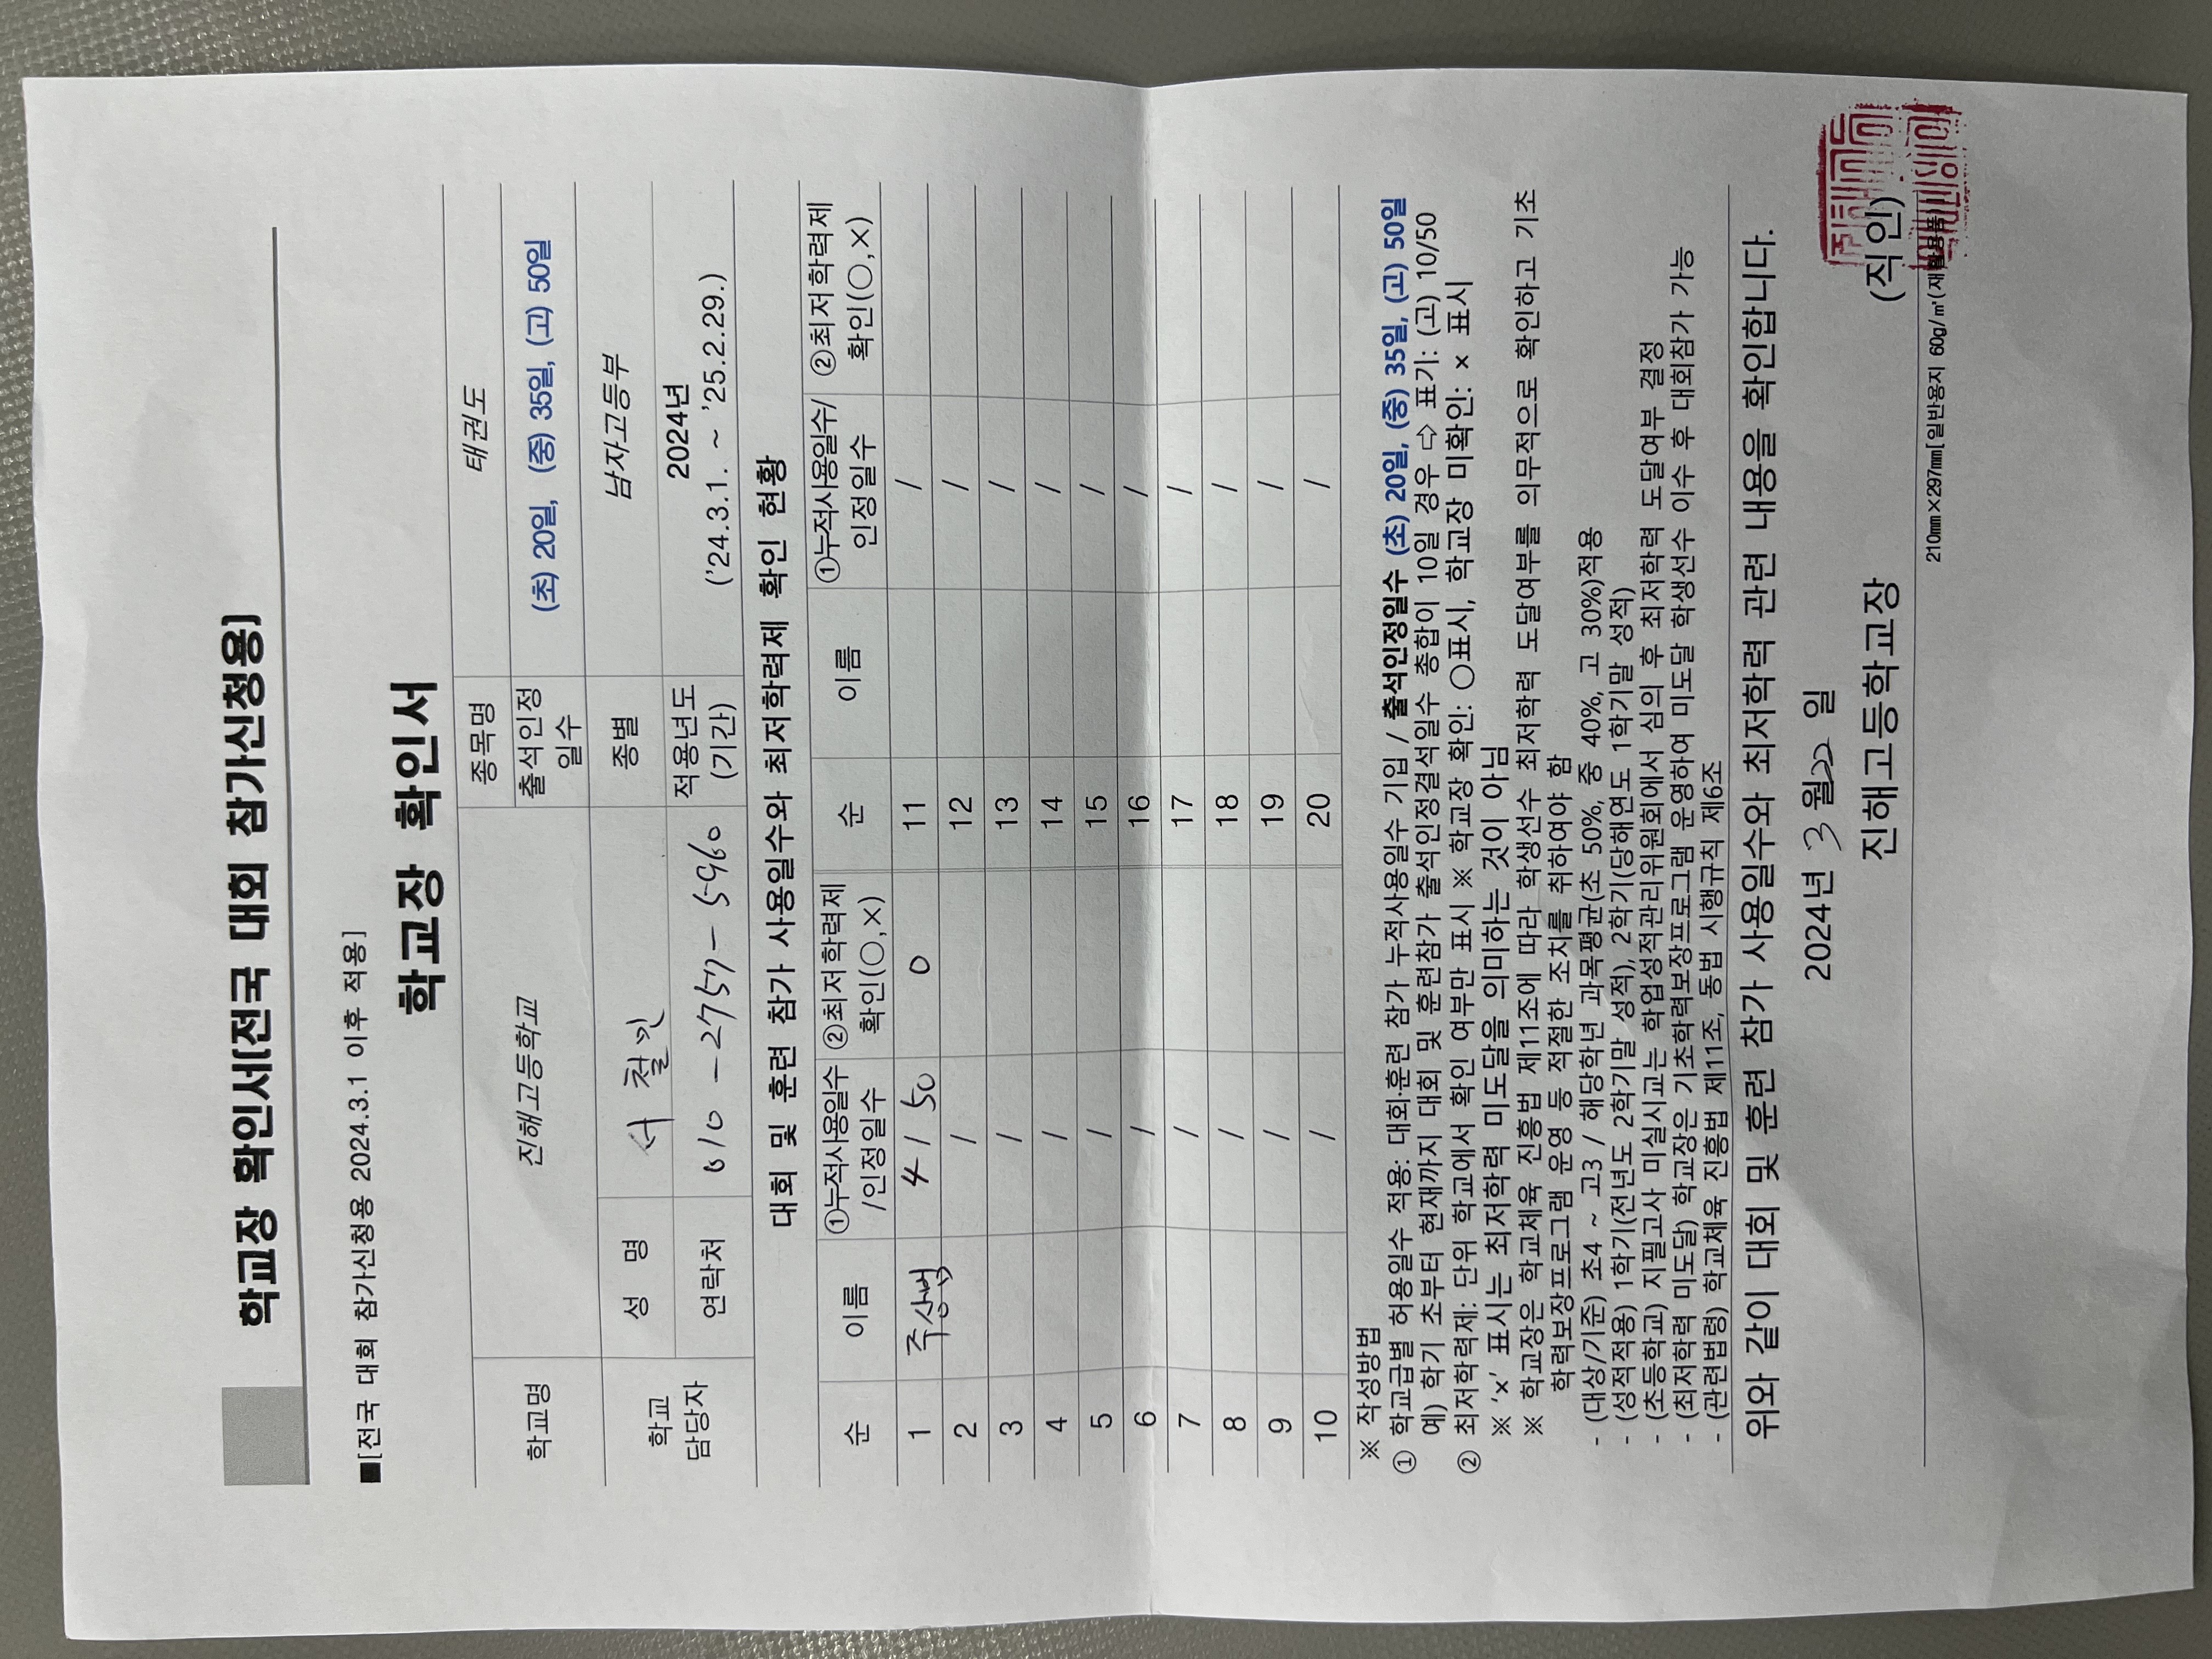 학교장 확인서[전국 대회 참가신청용]
■[전국 대회 참가신청용 2024.3.1 이후 적용]
학교장 확인서
학교명 진해고등학교 종목명 태권도
출석인정 일수 (초) 20일, (중) 35일, (고) 50일
학교 담당자 성 명 서철 종별 남자고등부
연락처 010-2757-5960 적용년도 (기간) 2024년 ('24.3.1. ~ '25.2.29.)
대회 및 훈련 참가 사용일수와 최저학력제 확인 현황
순 이름 ①누적사용일수/인정일수 ②최저학력제 확인(○,×) 순 이름 ①누적사용일수/인정일수 ②최저학력제 확인(○,×)
1 주상범 4 / 50 0 11 /
2 / 12 /
3 / 13 /
4 / 14 /
5 / 15 /
6 / 16 /
7 / 17 /
8 / 18 /
9 / 19 /
10 / 20 /
※ 작성방법
① 학교급별 허용일수 적용: 대회·훈련 참가 누적사용일수 기입 / 출석인정일수 (초) 20일, (중) 35일, (고) 50일
예) 학기 초부터 현재까지 대회 및 훈련참가 출석인정결석일수 총합이 10일 경우 ⇨ 표기: (고) 10/50
② 최저학력제: 단위 학교에서 확인 여부만 표시 ※ 학교장 확인: ○표시, 학교장 미확인: × 표시
※ '×' 표시는 최저학력 미도달을 의미하는 것이 아님
※ 학교장은 학교체육 진흥법 제11조에 따라 학생선수 최저학력 도달여부를 의무적으로 확인하고 기초
학력보장프로그램 운영 등 적절한 조치를 취하여야 함
- (대상/기준) 초4 ~ 고3 / 해당학년 과목평균(초 50%, 중 40%, 고 30%)적용
- (성적적용) 1학기(전년도 2학기말 성적), 2학기(당해연도 1학기말 성적)
- (초등학교) 지필고사 미실시교는 학업성적관리위원회에서 심의 후 최저학력 도달여부 결정
- (최저학력 미도달) 학교장은 기초학력보장프로그램 운영하여 미도달 학생선수 이수 후 대회참가 가능
- (관련법령) 학교체육 진흥법 제11조, 동법 시행규칙 제6조
위와 같이 대회 및 훈련 참가 사용일수와 최저학력 관련 내용을 확인합니다.
2024년 3 월 22 일
진해고등학교장 (직인)
210㎜×297㎜[일반용지 60g/㎡(재활용품)]